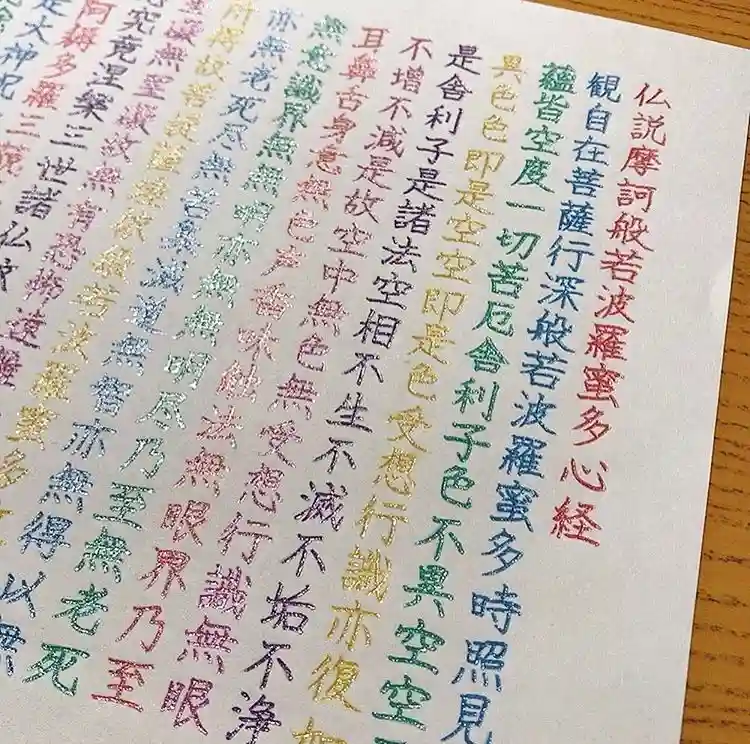 仏説摩訶般若波羅蜜多心経
観自在菩薩行深般若波羅蜜多時照見
蘊皆空度一切苦厄舎利子色不異空空
異色色即是空空即是色受想行識亦復如
是舎利子是諸法空相不生不滅不垢不浄
不増不減是故空中無色無受想行識無眼
耳鼻舌身意無色声香味触法無眼界乃至
無意識界無無明亦無無明尽乃至無老死
亦無老死尽無苦集滅道無智亦無得以無
所得故菩提薩埵依般若波羅蜜多
罣礙無罣礙故無有恐怖遠離
究竟涅槃三世諸仏依
阿耨多羅三藐
是大神呪